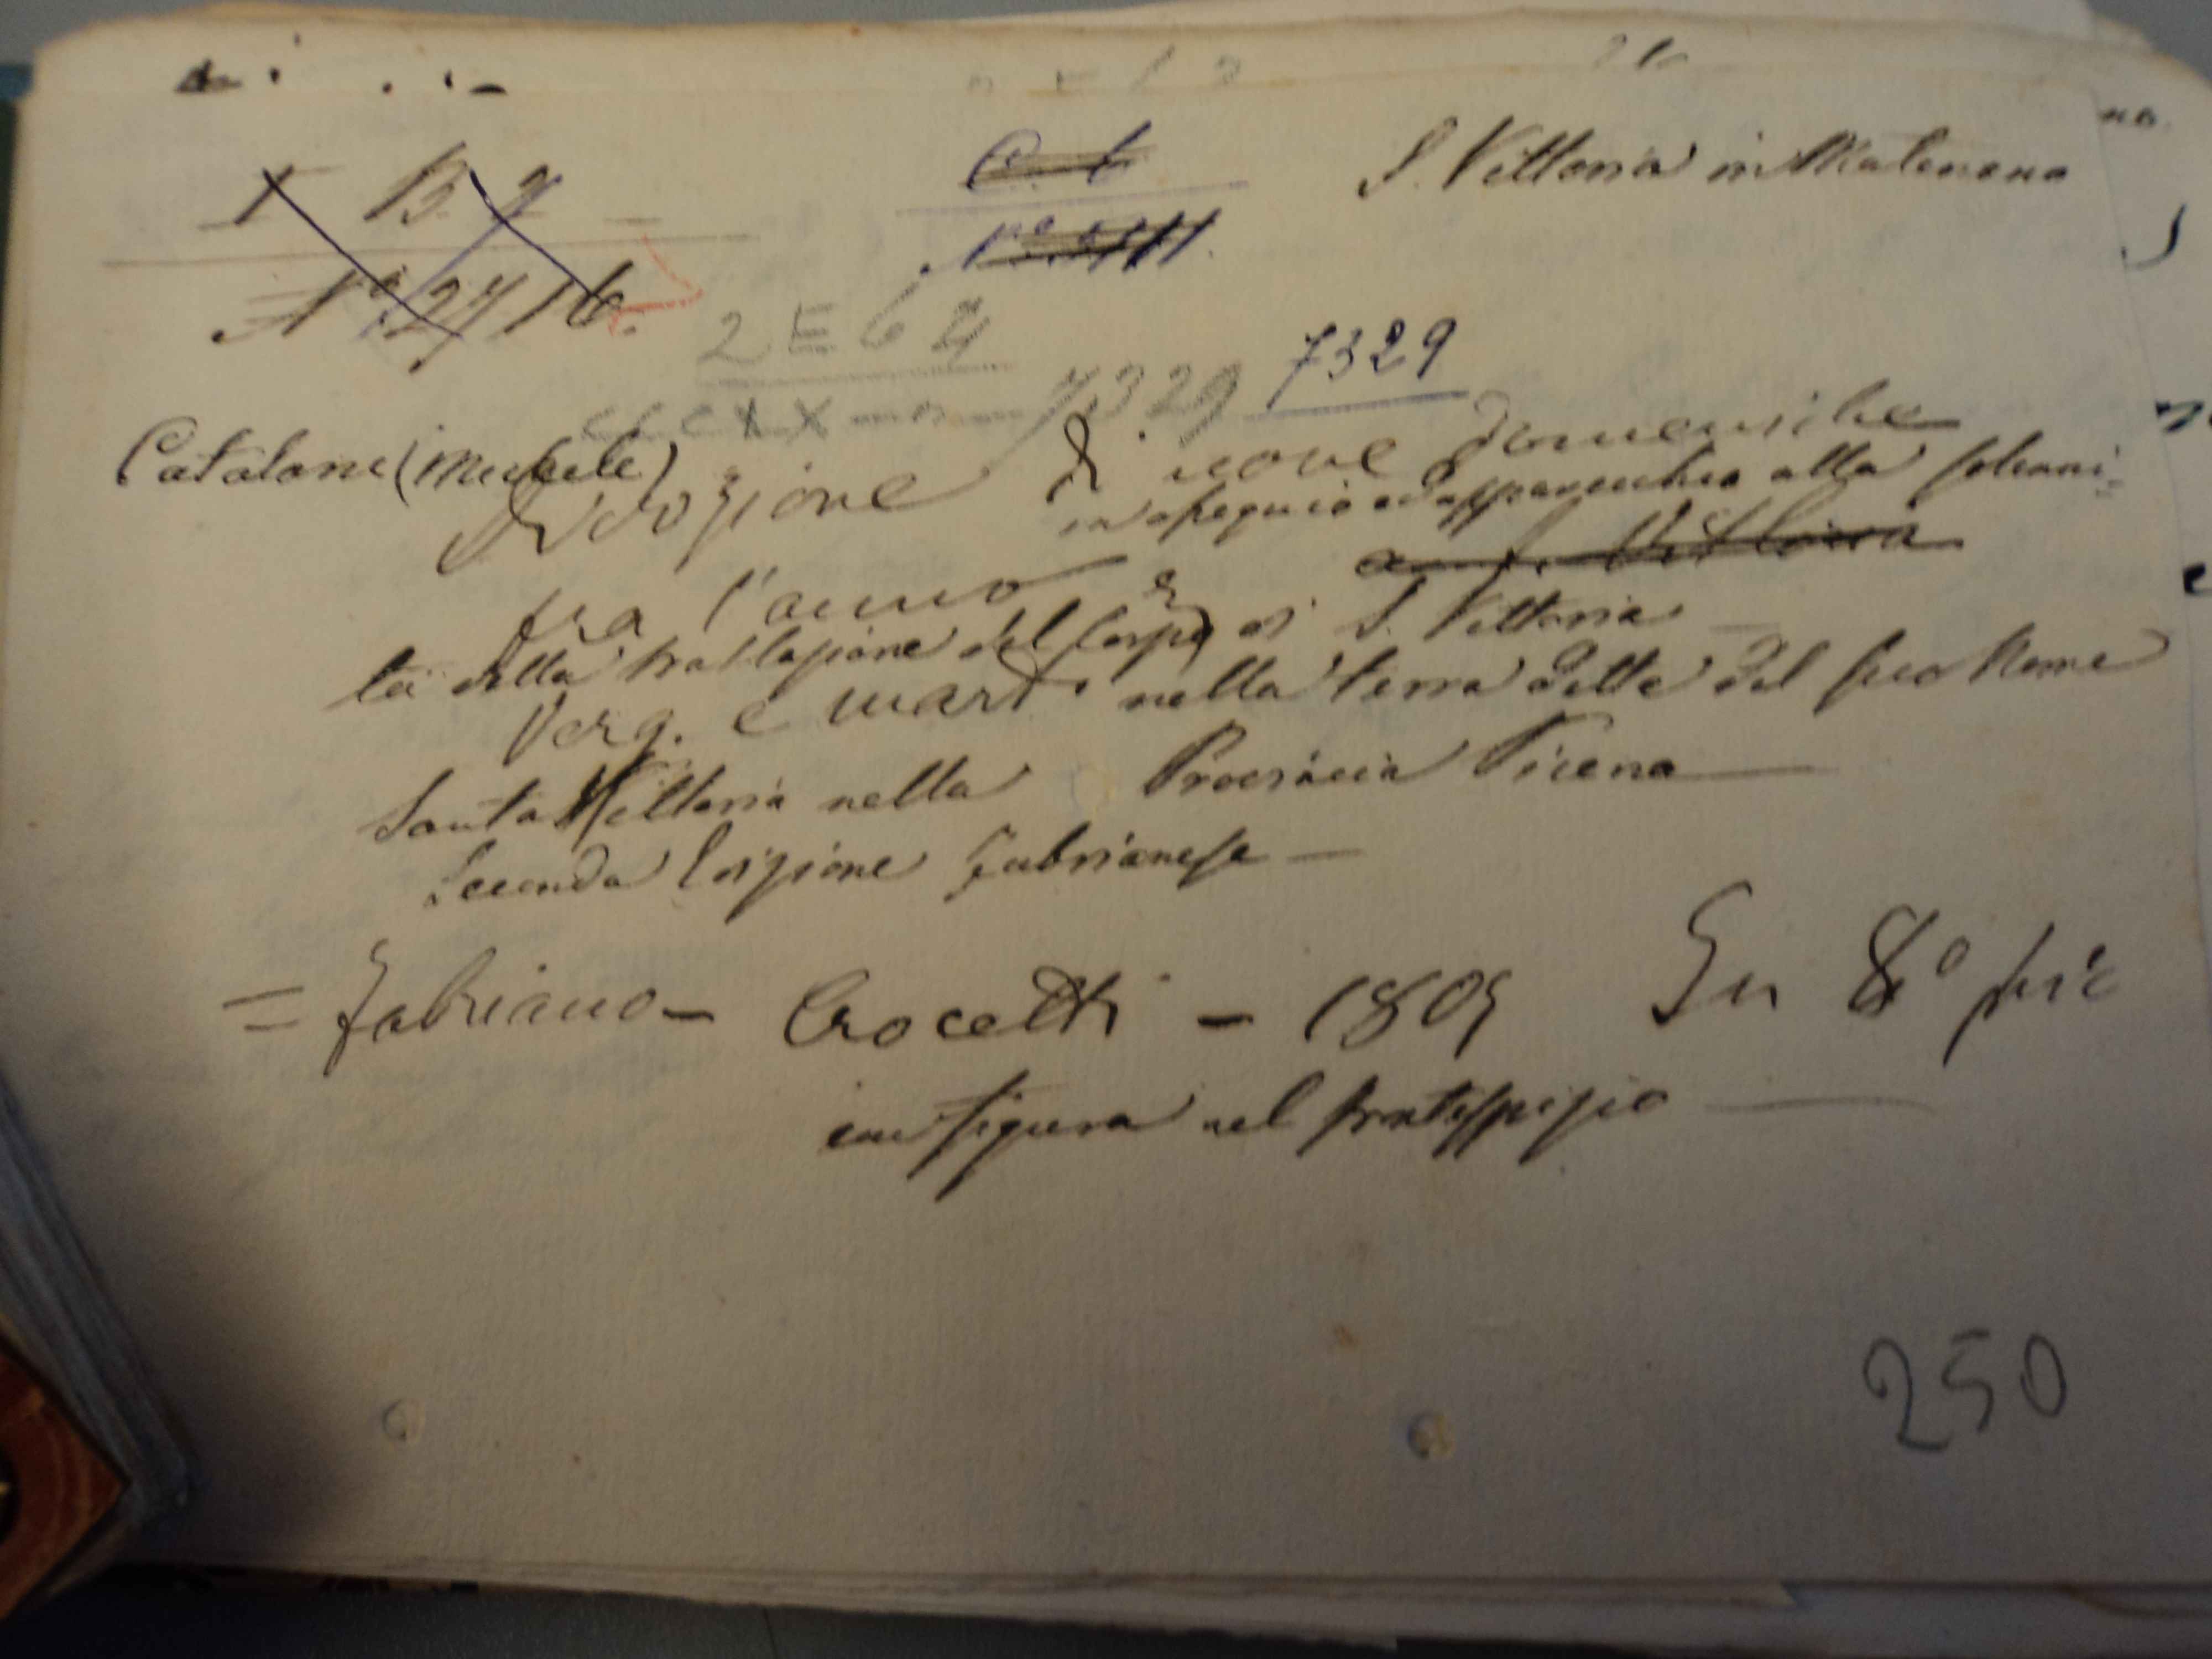 S. Vittoria in Matenano
I B. 7
C. 6
Nº 2716.
2 E 64
7329
7329
Catalani (Michele)
Divozione di nove domeniche
in ossequio ed apparecchio alla solenni-
fra l'anno a S. Vittoria
tà della traslazione del Corpo di S. Vittoria
Verg. e mart. nella terra detta del suo Nome
Santa Vittoria nella Provincia Picena
Seconda Edizione Fabrianese
= Fabriano - Crocetti - 1809 In 8º pic
con figura nel frontespizio
250